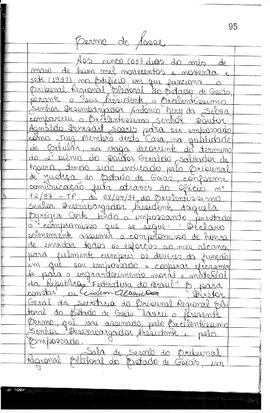 95
Termo de Posse
Aos cinco (05) dias do mês de
maio de hum mil novecentos e noventa e
sete (1997), no Edifício em que funciona o
Tribunal Regional Eleitoral do Estado de Goiás
perante o seu Presidente o Excelentíssimo
Senhor Desembargador Antônio Nery da Silva,
compareceu o Excelentíssimo Senhor Doutor
Soares para ser empossado
como Juiz Membro desta Casa, na qualidade
de Titular, na vaga decorrente do término
do 2º biênio do Doutor Geraldo Salvador de
Moura, tendo sido indicado pelo Tribunal
de Justiça do Estado de Goiás, conforme
comunicação feita através do Ofício nº
12/97 - TP, de 08/04/97, do Excelentíssimo
Senhor Desembargador Presidente daquela
Egrégia Corte, tendo o empossando prestado
o "compromisso que se segue: "Declaro
solenemente assumir o compromisso de honra
de envidar todos os esforços ao meu alcance
para fielmente cumprir os deveres da função
em que sou empossado e cooperar eficazmente
para o engrandecimento moral e material
da República Federativa do Brasil" E, para
constar eu Diretor
Geral da Secretaria do Tribunal Regional Elei-
toral do Estado de Goiás lavrei o presente
Termo, que vai assinado pelo Excelentíssimo
Senhor Desembargador Presidente e pelo
Empossado.
Sala de Sessões do Tribunal
Regional Eleitoral do Estado de Goiás, em